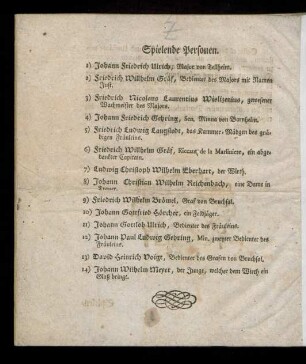 Spielende Personen.
1) Johann Friedrich Ulrich, Major von Tellheim.
2) Friedrich Willhelm Gräf, Bedienter des Majors mit Namen
Just.
3) Friedrich Nicolaus Laurentius Wiolizenius, gewesener
Wachtmeister des Majors.
4) Johann Friedrich Gehring, Minna von Barnhelm.
5) Friedrich Ludwig Langstedt, das Kammer-Mädgen des gnä-
digen Fräuleins.
6) Friedrich Willhelm Gräf, Riccaut de la Marliniere, ein abge-
dankter Capitain.
7) Ludwig Christoph Wilhelm Eberhart, der Wirth.
8) Johann Christian Willhelm Reichenbach, eine Dame in
Trauer.
9) Friedrich Wilhelm Brömel, Graf von Bruchsal.
10) Johann Gottfried Hörcher, ein Feldjäger.
11) Johann Gottlob Ulrich, Bedienter des Fräuleins.
12) Johann Paul Ludwig Gehring, zweyter Bedienter des
Fräuleins.
13) David Heinrich Voigt, Bedienter des Grafen von Bruchsal.
14) Johann Wilhelm Meyer, der Junge, welcher dem Wirth ein
Glaß bringt.